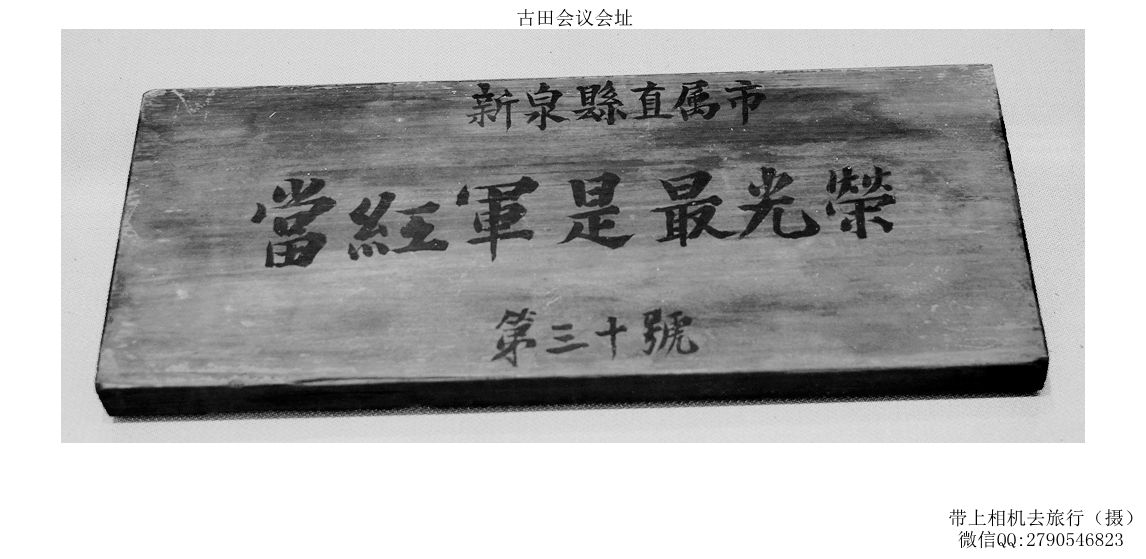 古田会议会址
新泉縣直属市
當紅軍是最光榮
第三十號
带上相机去旅行（摄）
微信QQ:2790546823